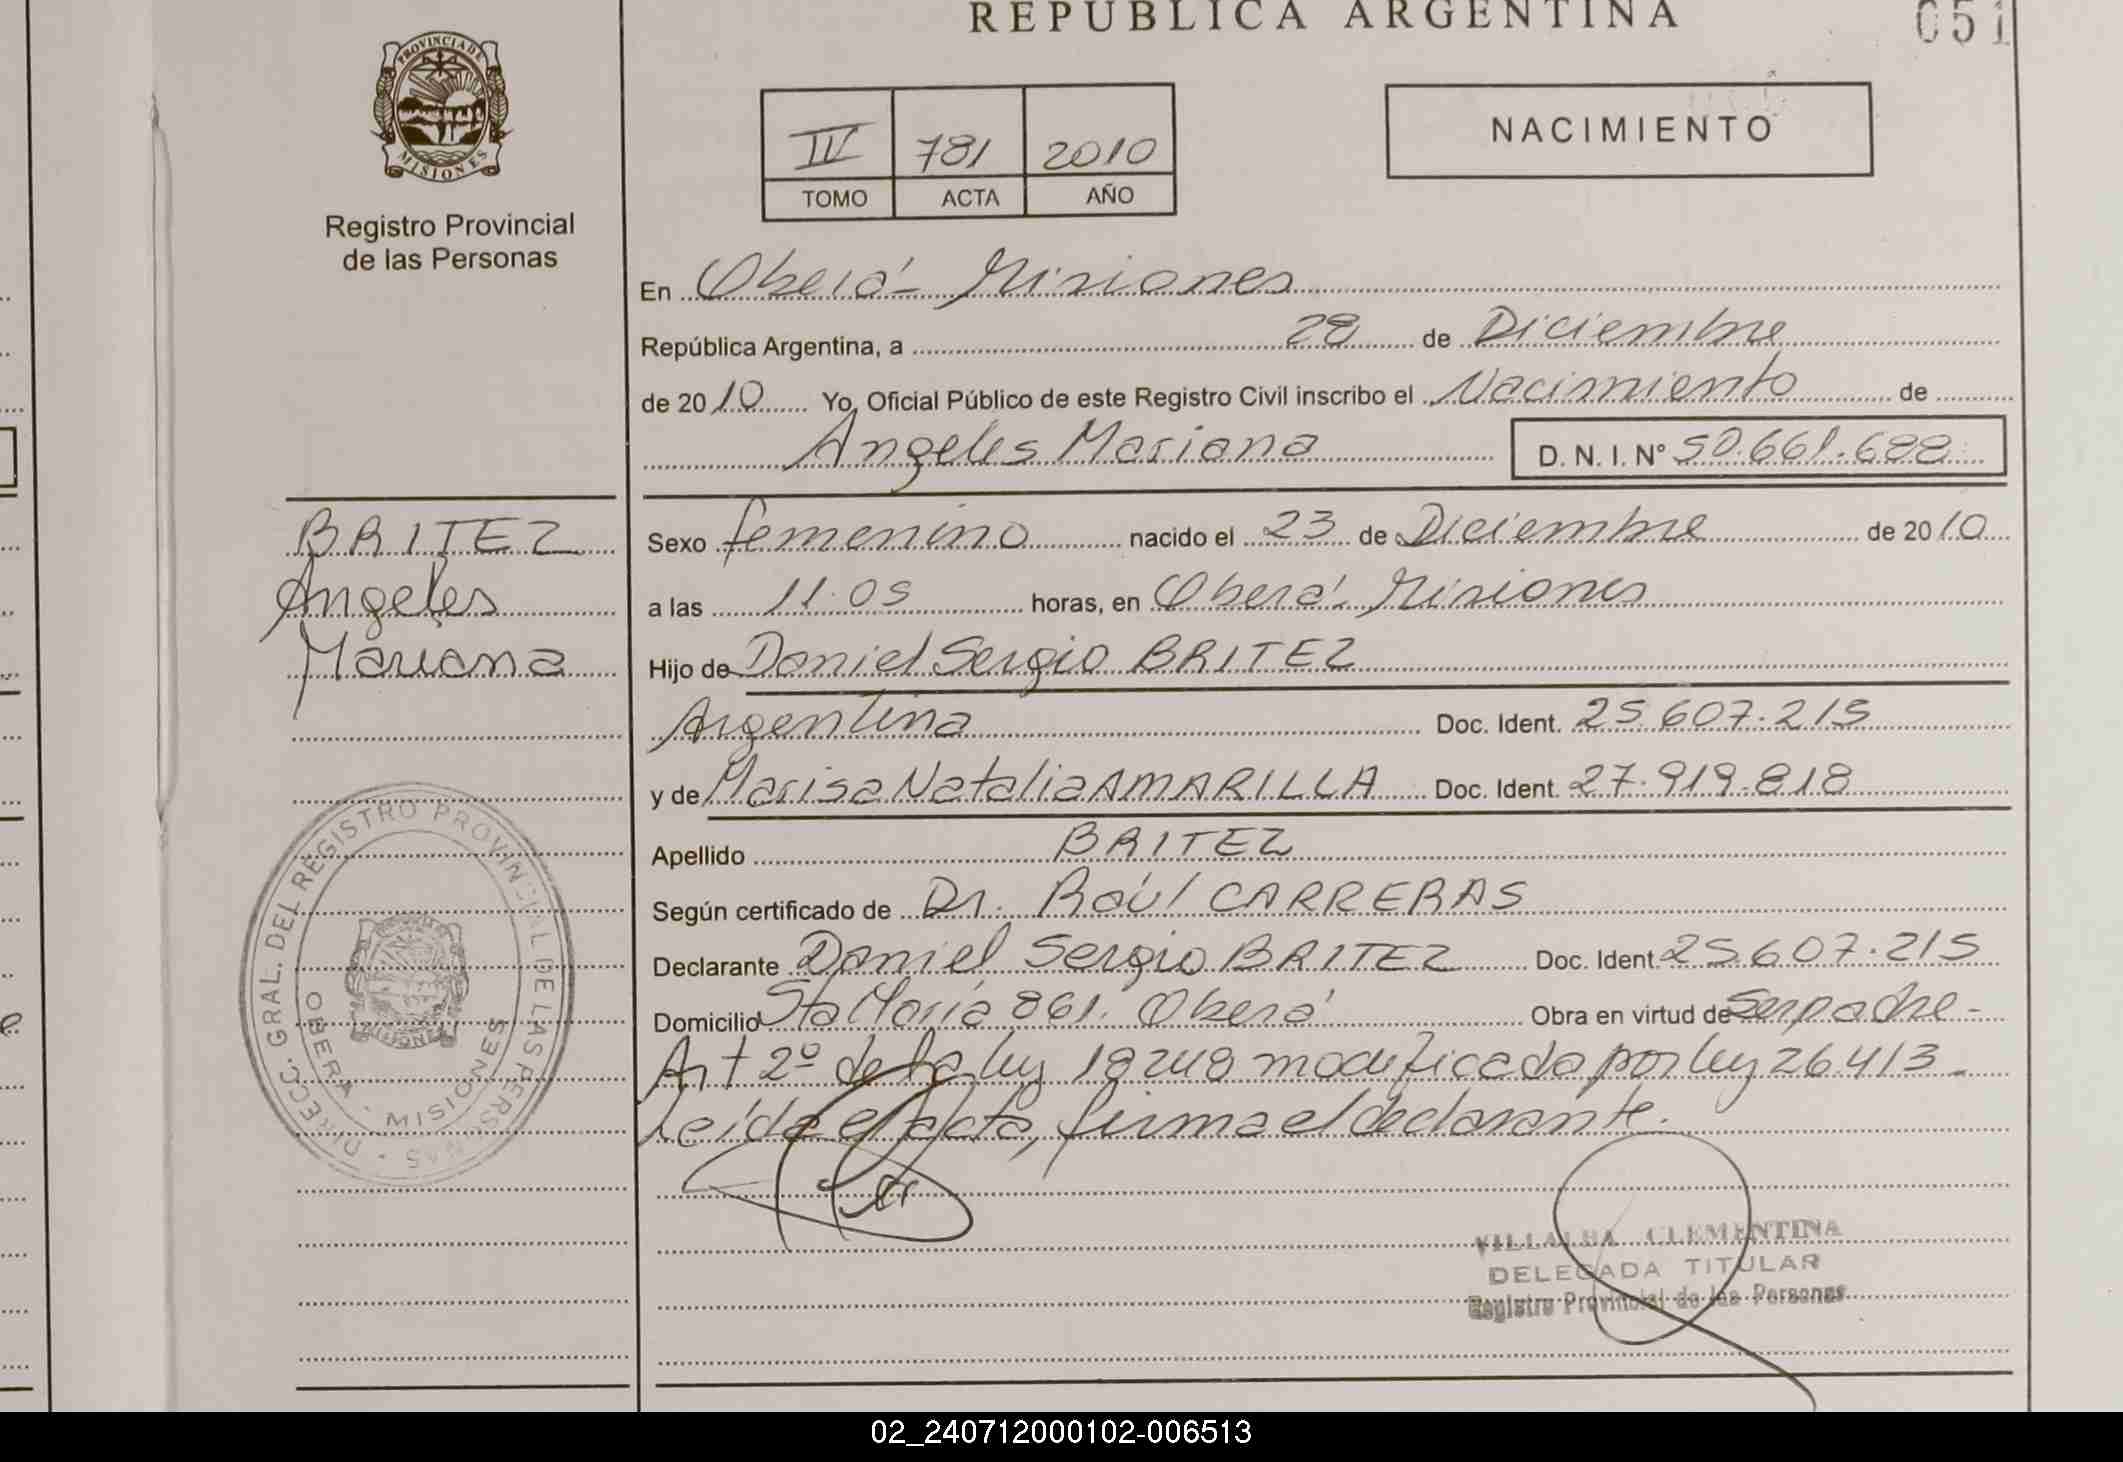 REPUBLICA ARGENTINA
051
PROVINCIA DE MISIONES
Registro Provincial
de las Personas
IV 781 2010
TOMO ACTA AÑO
NACIMIENTO
En Oberá - Misiones
República Argentina, a 28 de Diciembre
de 2010 Yo, Oficial Público de este Registro Civil inscribo el Nacimiento de
Angeles Mariana D. N. I. N° 50.661.688
BRITEZ
Angeles
Mariana
Sexo femenino nacido el 23 de Diciembre de 2010
a las 11.05 horas, en Oberá. Misiones
Hijo de Daniel Sergio BRITEZ
Argentina Doc. Ident. 25.607.215
y de Marisa Natalia AMARILLA Doc. Ident. 27.919.818
Apellido BRITEZ
Según certificado de Dr. Raúl CARRERAS
Declarante Daniel Sergio BRITEZ Doc. Ident. 25.607.215
Domicilio Sta María 861. Oberá Obra en virtud de Ser padre -
Art 2º de la ley 18248 modificada por ley 26.413 -
Leída el acta, firma el declarante.
DIRECC. GRAL. DEL REGISTRO PROVINCIAL DE LAS PERSONAS
OBERA - MISIONES
MISIONES
VILLALBA CLEMENTINA
DELEGADA TITULAR
Registro Provincial de las Personas
02_240712000102-006513